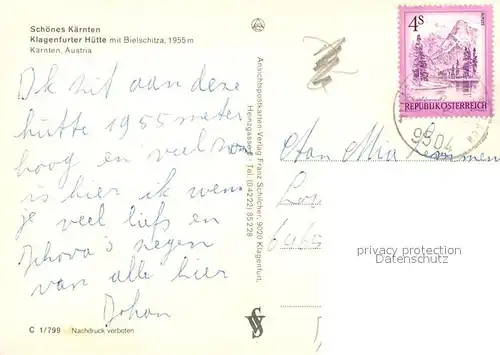 Schönes Kärnten
Klagenfurter Hütte mit Bielschitza, 1955 m
Kärnten, Austria
Ik zit aan deze
hütte 1955 meter
hoog en veel
is hier ik wens
je veel liefs en
Jehova's zegen
van alle hier
Johan
C 1/799 Nachdruck verboten
Ansichtspostkarten-Verlag Franz Schilcher, 9020 Klagenfurt,
Henzgasse Tel. (0 42 22) 85 2 28
4S
REPUBLIK ÖSTERREICH
9504
Aan Mia
privacy protection
Datenschutz